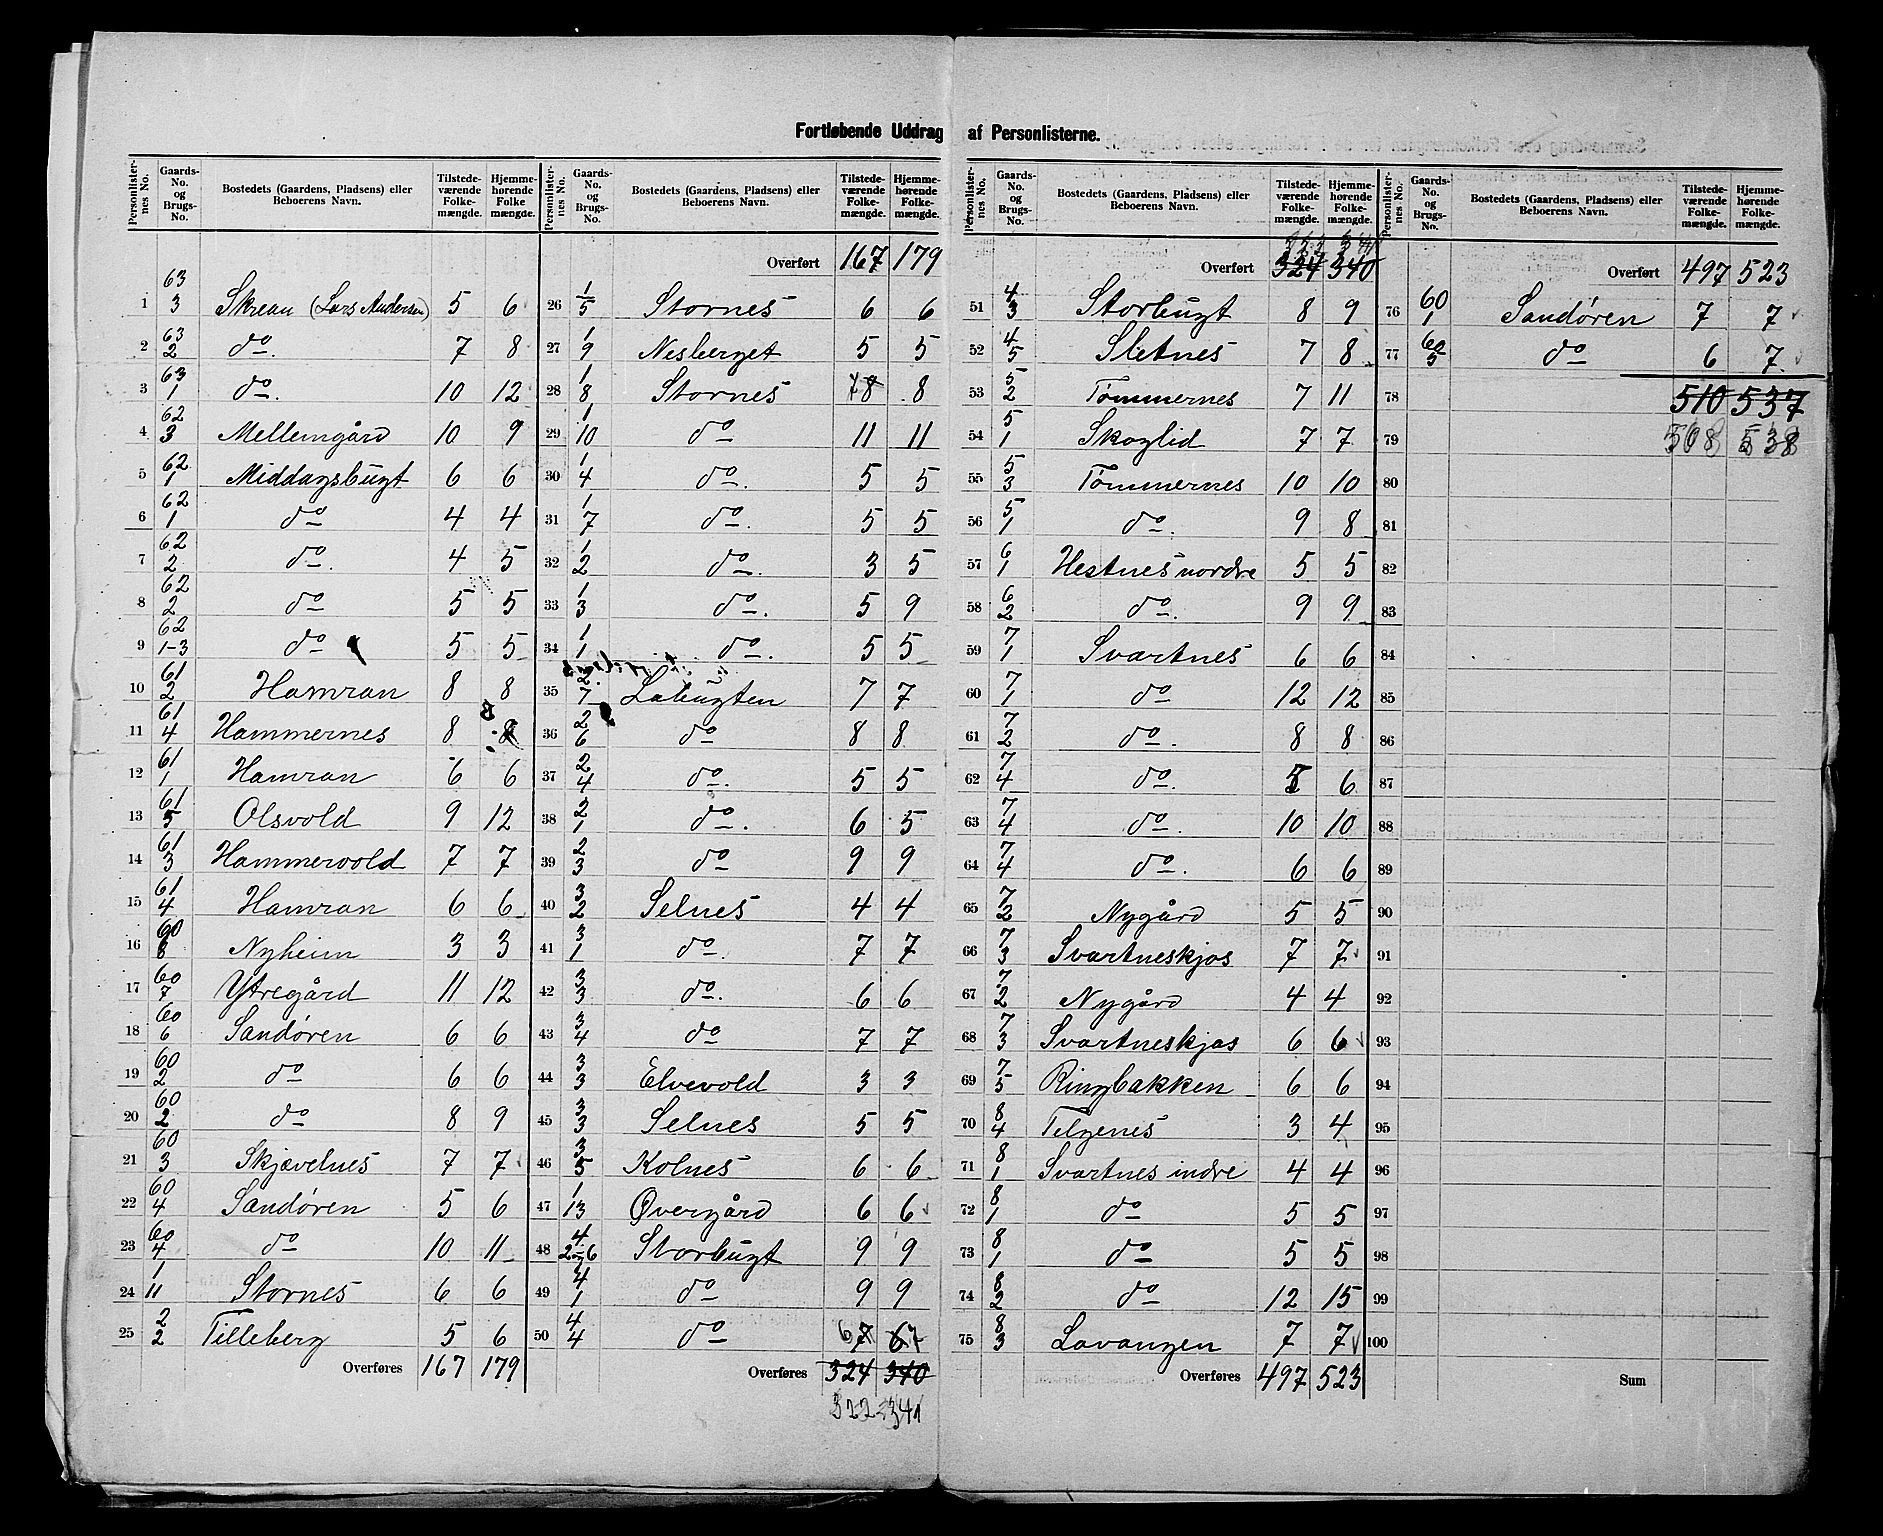 Fortløbende Uddrag af Personlisterne.
Personlisternes No. | Gaards-No. og Brugs-No. | Bostedets (Gaardens, Pladsens) eller Beboerens Navn. | Tilstedeværende Folkemængde. | Hjemmehørende Folkemængde.
1 | 63 3 | Skrean (Lars Andersen) | 5 | 6
2 | 63 2 | do. | 7 | 8
3 | 63 1 | do. | 10 | 12
4 | 62 3 | Mellemgård | 10 | 9
5 | 62 1 | Middagsbugt | 6 | 6
6 | 62 1 | do | 4 | 4
7 | 62 2 | do. | 4 | 5
8 | 62 2 | do | 5 | 5
9 | 62 1-3 | do | 5 | 5
10 | 61 2 | Hamran | 8 | 8
11 | 61 4 | Hammernes | 8 | 8
12 | 61 1 | Hamran | 6 | 6
13 | 61 5 | Olsvold | 9 | 12
14 | 61 3 | Hammervold | 7 | 7
15 | 61 4 | Hamran | 6 | 6
16 | 60 8 | Nyheim | 3 | 3
17 | 60 7 | Ytregård | 11 | 12
18 | 60 6 | Sandøren | 6 | 6
19 | 60 2 | do | 6 | 6
20 | 60 2 | do | 8 | 9
21 | 60 3 | Skjævelnes | 7 | 7
22 | 60 4 | Sandøren | 5 | 6
23 | 60 4 | do | 10 | 11
24 | 1 11 | Stornes | 6 | 6
25 | 2 2 | Tilleberg | 5 | 6
Overføres 167 179
Personlisternes No. | Gaards-No. og Brugs-No. | Bostedets (Gaardens, Pladsens) eller Beboerens Navn. | Tilstedeværende Folkemængde. | Hjemmehørende Folkemængde.
Overført 167 179
26 | 1 5 | Stornes | 6 | 6
27 | 1 9 | Nesberget | 5 | 5
28 | 1 8 | Stornes | 7 8 | 8
29 | 1 10 | do | 11 | 11
30 | 1 4 | do. | 5 | 5
31 | 1 7 | do. | 5 | 5
32 | 1 2 | do. | 3 | 5
33 | 1 3 | do. | 5 | 9
34 | 1 1 | do. | 5 | 5
35 | 2 7 | Labugten | 7 | 7
36 | 2 6 | do | 8 | 8
37 | 2 4 | do. | 5 | 5
38 | 2 1 | do. | 6 | 5
39 | 2 3 | do | 9 | 9
40 | 3 2 | Selnes | 4 | 4
41 | 3 1 | do. | 7 | 7
42 | 3 3 | do. | 6 | 6
43 | 3 4 | do | 7 | 7
44 | 3 3 | Elvevold | 3 | 3
45 | 3 3 | Selnes | 5 | 5
46 | 3 5 | Kolnes | 6 | 6
47 | 1 13 | Øvergård | 6 | 6
48 | 4 2-6 | Storbugt | 9 | 9
49 | 4 1 | do | 9 | 9
50 | 4 4 | do | 6 7 | 6 7
Overføres 324 340
322 341
Personlisternes No. | Gaards-No. og Brugs-No. | Bostedets (Gaardens, Pladsens) eller Beboerens Navn. | Tilstedeværende Folkemængde. | Hjemmehørende Folkemængde.
322 341
Overført 324 340
51 | 4 3 | Storbugt | 8 | 9
52 | 4 5 | Sletnes | 7 | 8
53 | 5 2 | Tømmernes | 7 | 11
54 | 5 1 | Skoglid | 7 | 7
55 | 5 3 | Tømmernes | 10 | 10
56 | 5 1 | do. | 9 | 8
57 | 6 1 | Hestnes nordre | 5 | 5
58 | 6 2 | do. | 9 | 9
59 | 7 1 | Svartnes | 6 | 6
60 | 7 1 | do | 12 | 12
61 | 7 2 | do. | 8 | 8
62 | 7 4 | do. | 5 | 6
63 | 7 4 | do. | 10 | 10
64 | 7 4 | do. | 6 | 6
65 | 7 2 | Nygård | 5 | 5
66 | 7 3 | Svartneskjos | 7 | 7
67 | 7 2 | Nygård | 4 | 4
68 | 7 3 | Svartneskjos | 6 | 6
69 | 7 5 | Ringbakken | 6 | 6
70 | 8 4 | Telgenes | 3 | 4
71 | 8 1 | Svartnes indre | 4 | 4
72 | 8 1 | do | 5 | 5
73 | 8 1 | do | 5 | 5
74 | 8 2 | do | 12 | 15
75 | 8 3 | Lavangen | 7 | 7
Overføres 497 523
Personlisternes No. | Gaards-No. og Brugs-No. | Bostedets (Gaardens, Pladsens) eller Beboerens Navn. | Tilstedeværende Folkemængde. | Hjemmehørende Folkemængde.
Overført 497 523
76 | 60 1 | Sandøren | 7 | 7
77 | 60 5 | do | 6 | 7
78 510 537
79 508 538
80
81
82
83
84
85
86
87
88
89
90
91
92
93
94
95
96
97
98
99
100
Sum